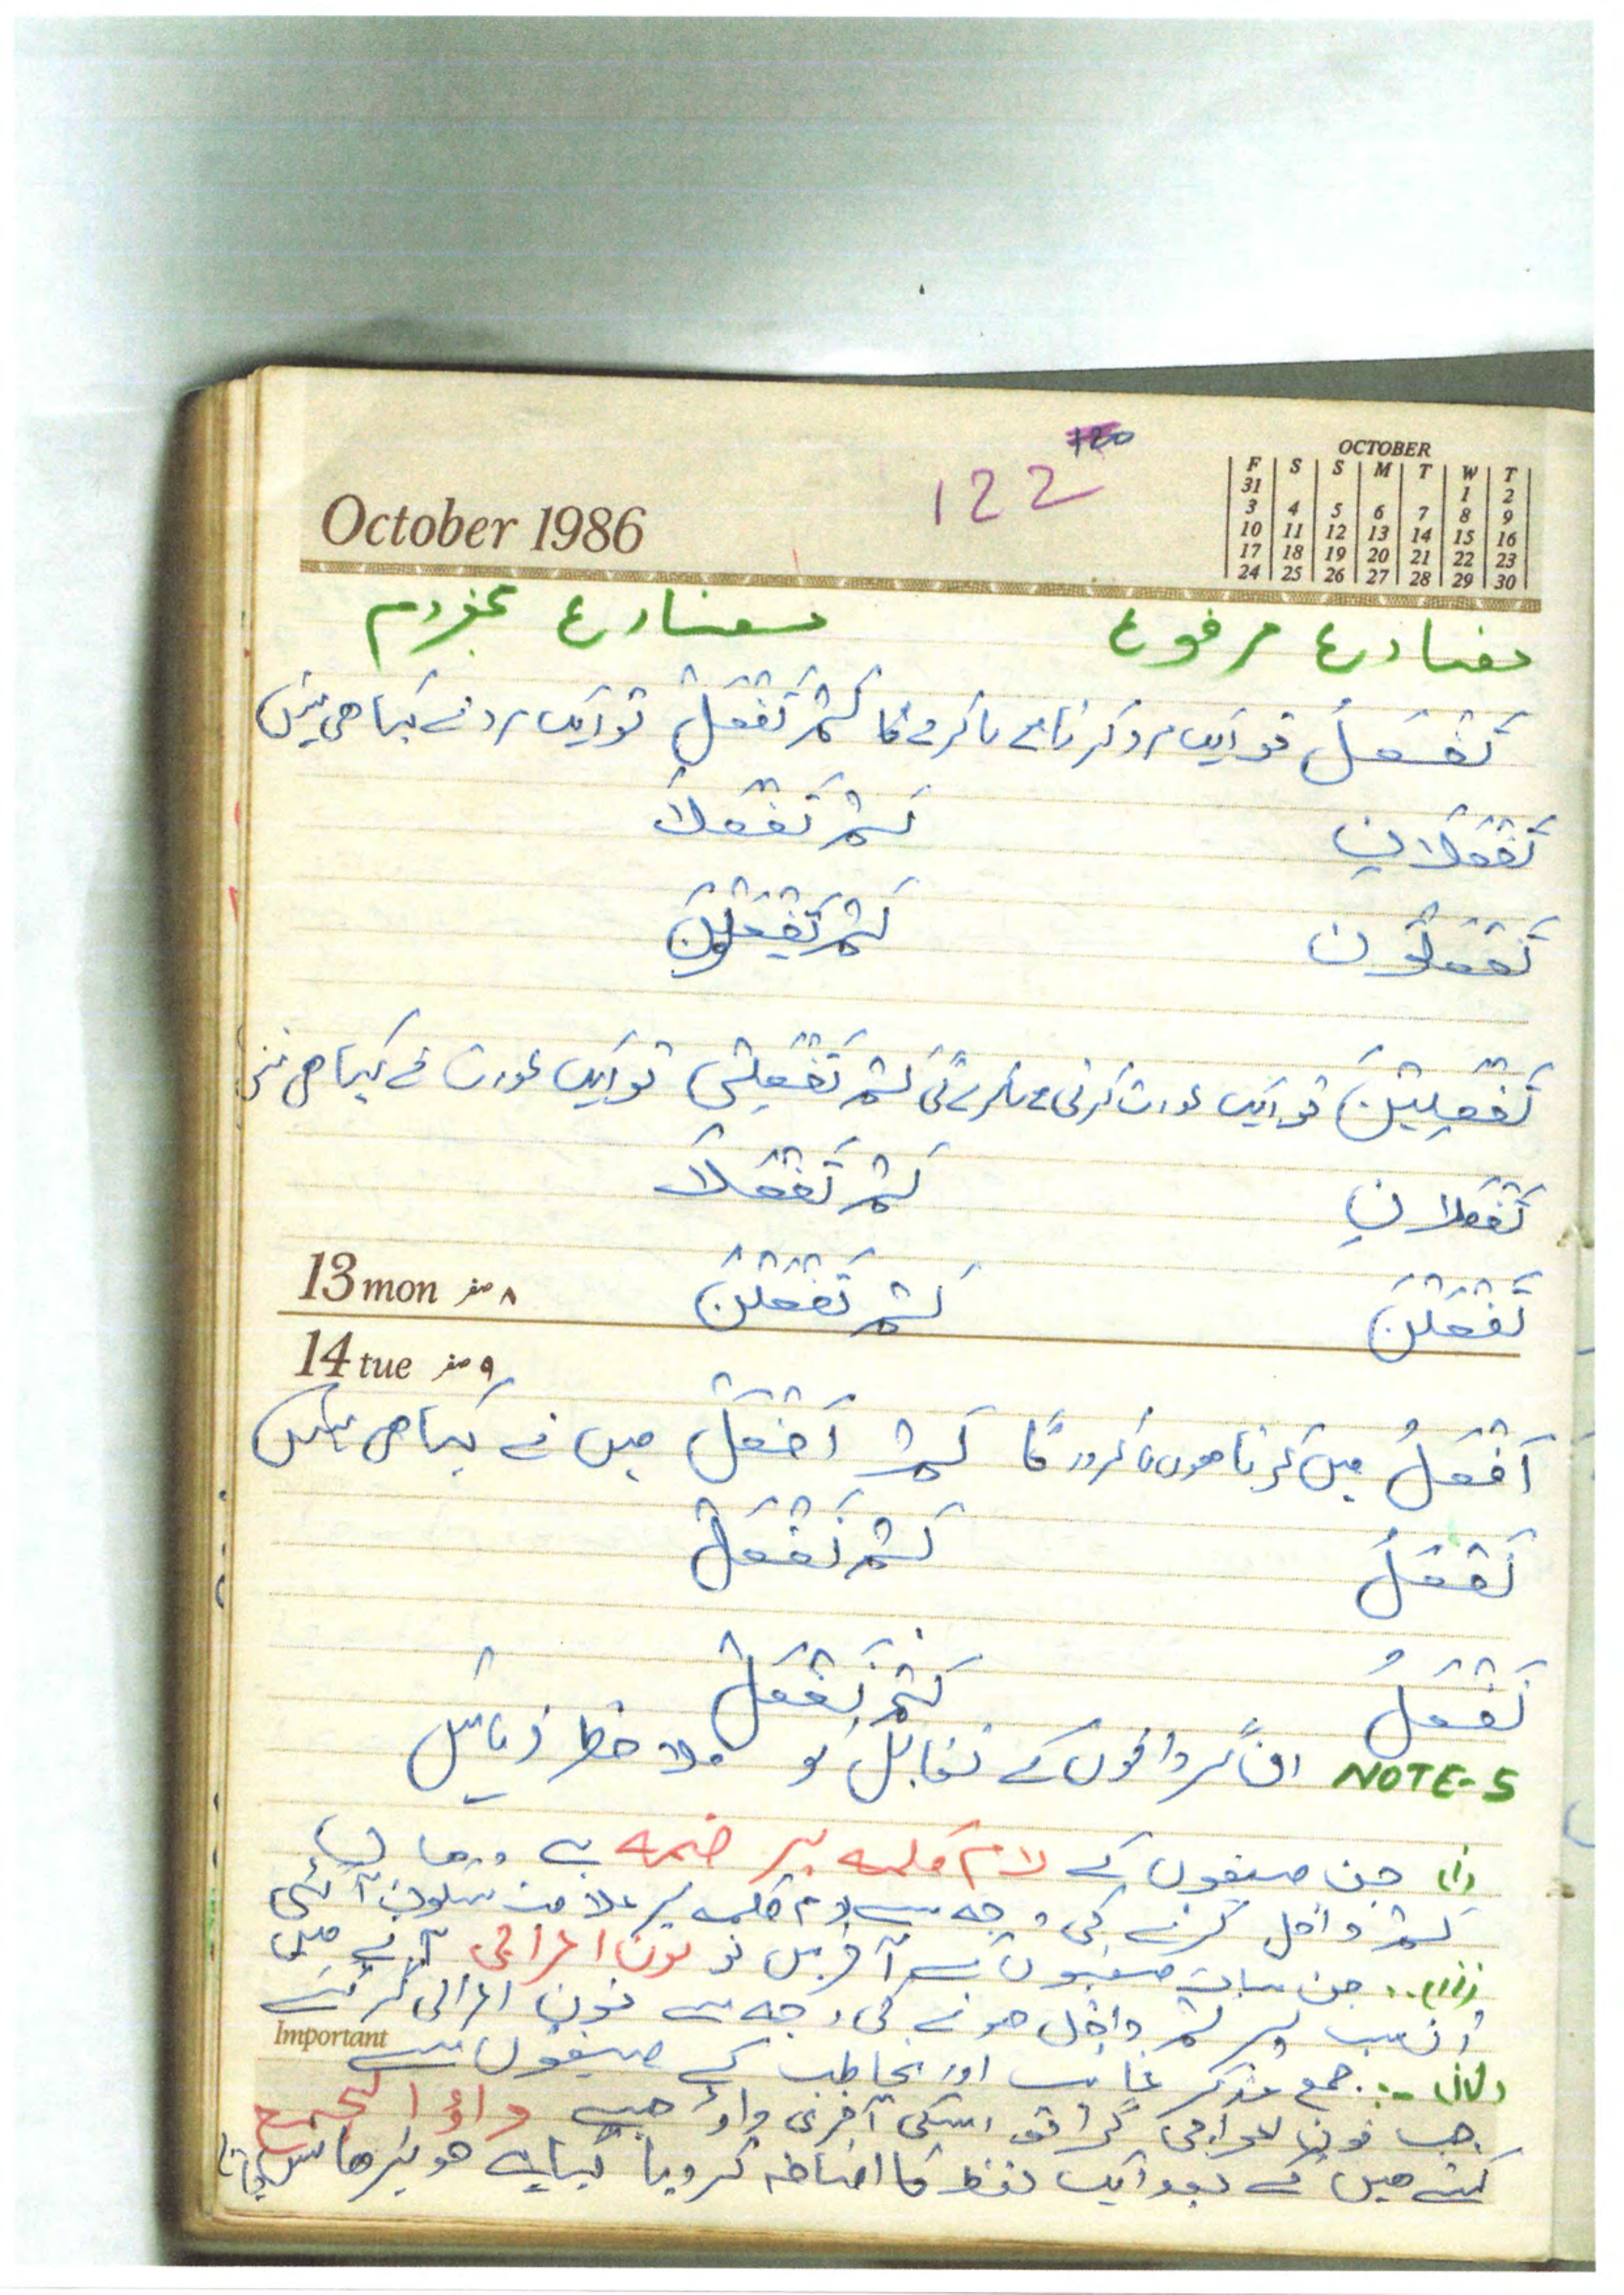 October 1986
120
122
OCTOBER
F S S M T W T
31 1 2
3 4 5 6 7 8 9
10 11 12 13 14 15 16
17 18 19 20 21 22 23
24 25 26 27 28 29 30
مضارع مرفوع مضارع مجزوم
تَفْعَلُ تو ایک مرد کرتا ہے یا کرے گا لَمْ تَفْعَلْ تو ایک مرد نے کیا ھی نہیں
تَفْعَلَانِ لَمْ تَفْعَلَا
تَفْعَلُوْنَ لَمْ
تَفْعَلِيْنَ تو ایک عورت کرتی ہے یا کرے گی لَمْ تَفْعَلِيْ تو ایک عورت نے کیا ھی نہیں
تَفْعَلَانِ لَمْ تَفْعَلَا
تَفْعَلْنَ لَمْ تَفْعَلْنَ
13 mon ۸ صفر
14 tue ۹ صفر
اَفْعَلُ میں کرتا ھوں یا کروں گا لَمْ اَفْعَلْ میں نے کیا ھی نہیں
نَفْعَلُ لَمْ نَفْعَلْ
نَفْعَلُ لَمْ نَفْعَلْ
NOTE-5 ان گردانوں کے تقابل کو ملاحظہ فرمائیں
(i) جن صیغوں کے لام کلمہ پر ضمہ ہے وہاں
لَمْ داخل کرنے کی وجہ سے لام کلمہ پر علامت سکون آ گئی
(ii) جن سات صیغوں کے آخر میں نون اعرابی آتے ھیں
ان سب پر لم داخل ھونے کی وجہ سے نون اعرابی گر گئے
Important
(iii) جمع مذکر غائب اور مخاطب کے صیغوں سے
جب نون اعرابی گرا تو اسکی آخری واؤ جسے واؤ الجمع
کہتے ھیں کے بعد ایک کا اضافہ کر دیا گیا ہے جو پڑھا نہیں جاتا